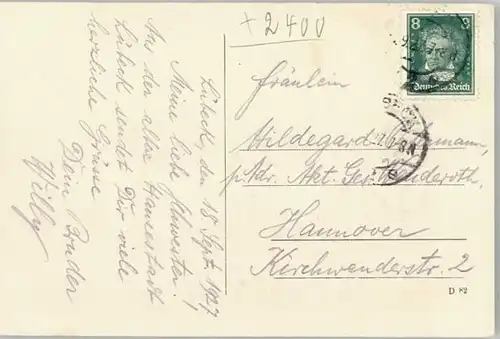 Lübeck, den 18. Sept. 1927.
Meine liebe Schwester!
Aus der alten Hansestadt
Lübeck sendet Dir viele
herzliche Grüsse
Dein Bruder
Willy
+ 2400
8 8
Deutsches Reich
Fräulein
Hildegard mann,
p. Adr. Akt. Ges.
Hannover
Kirchwenderstr. 2
D 82